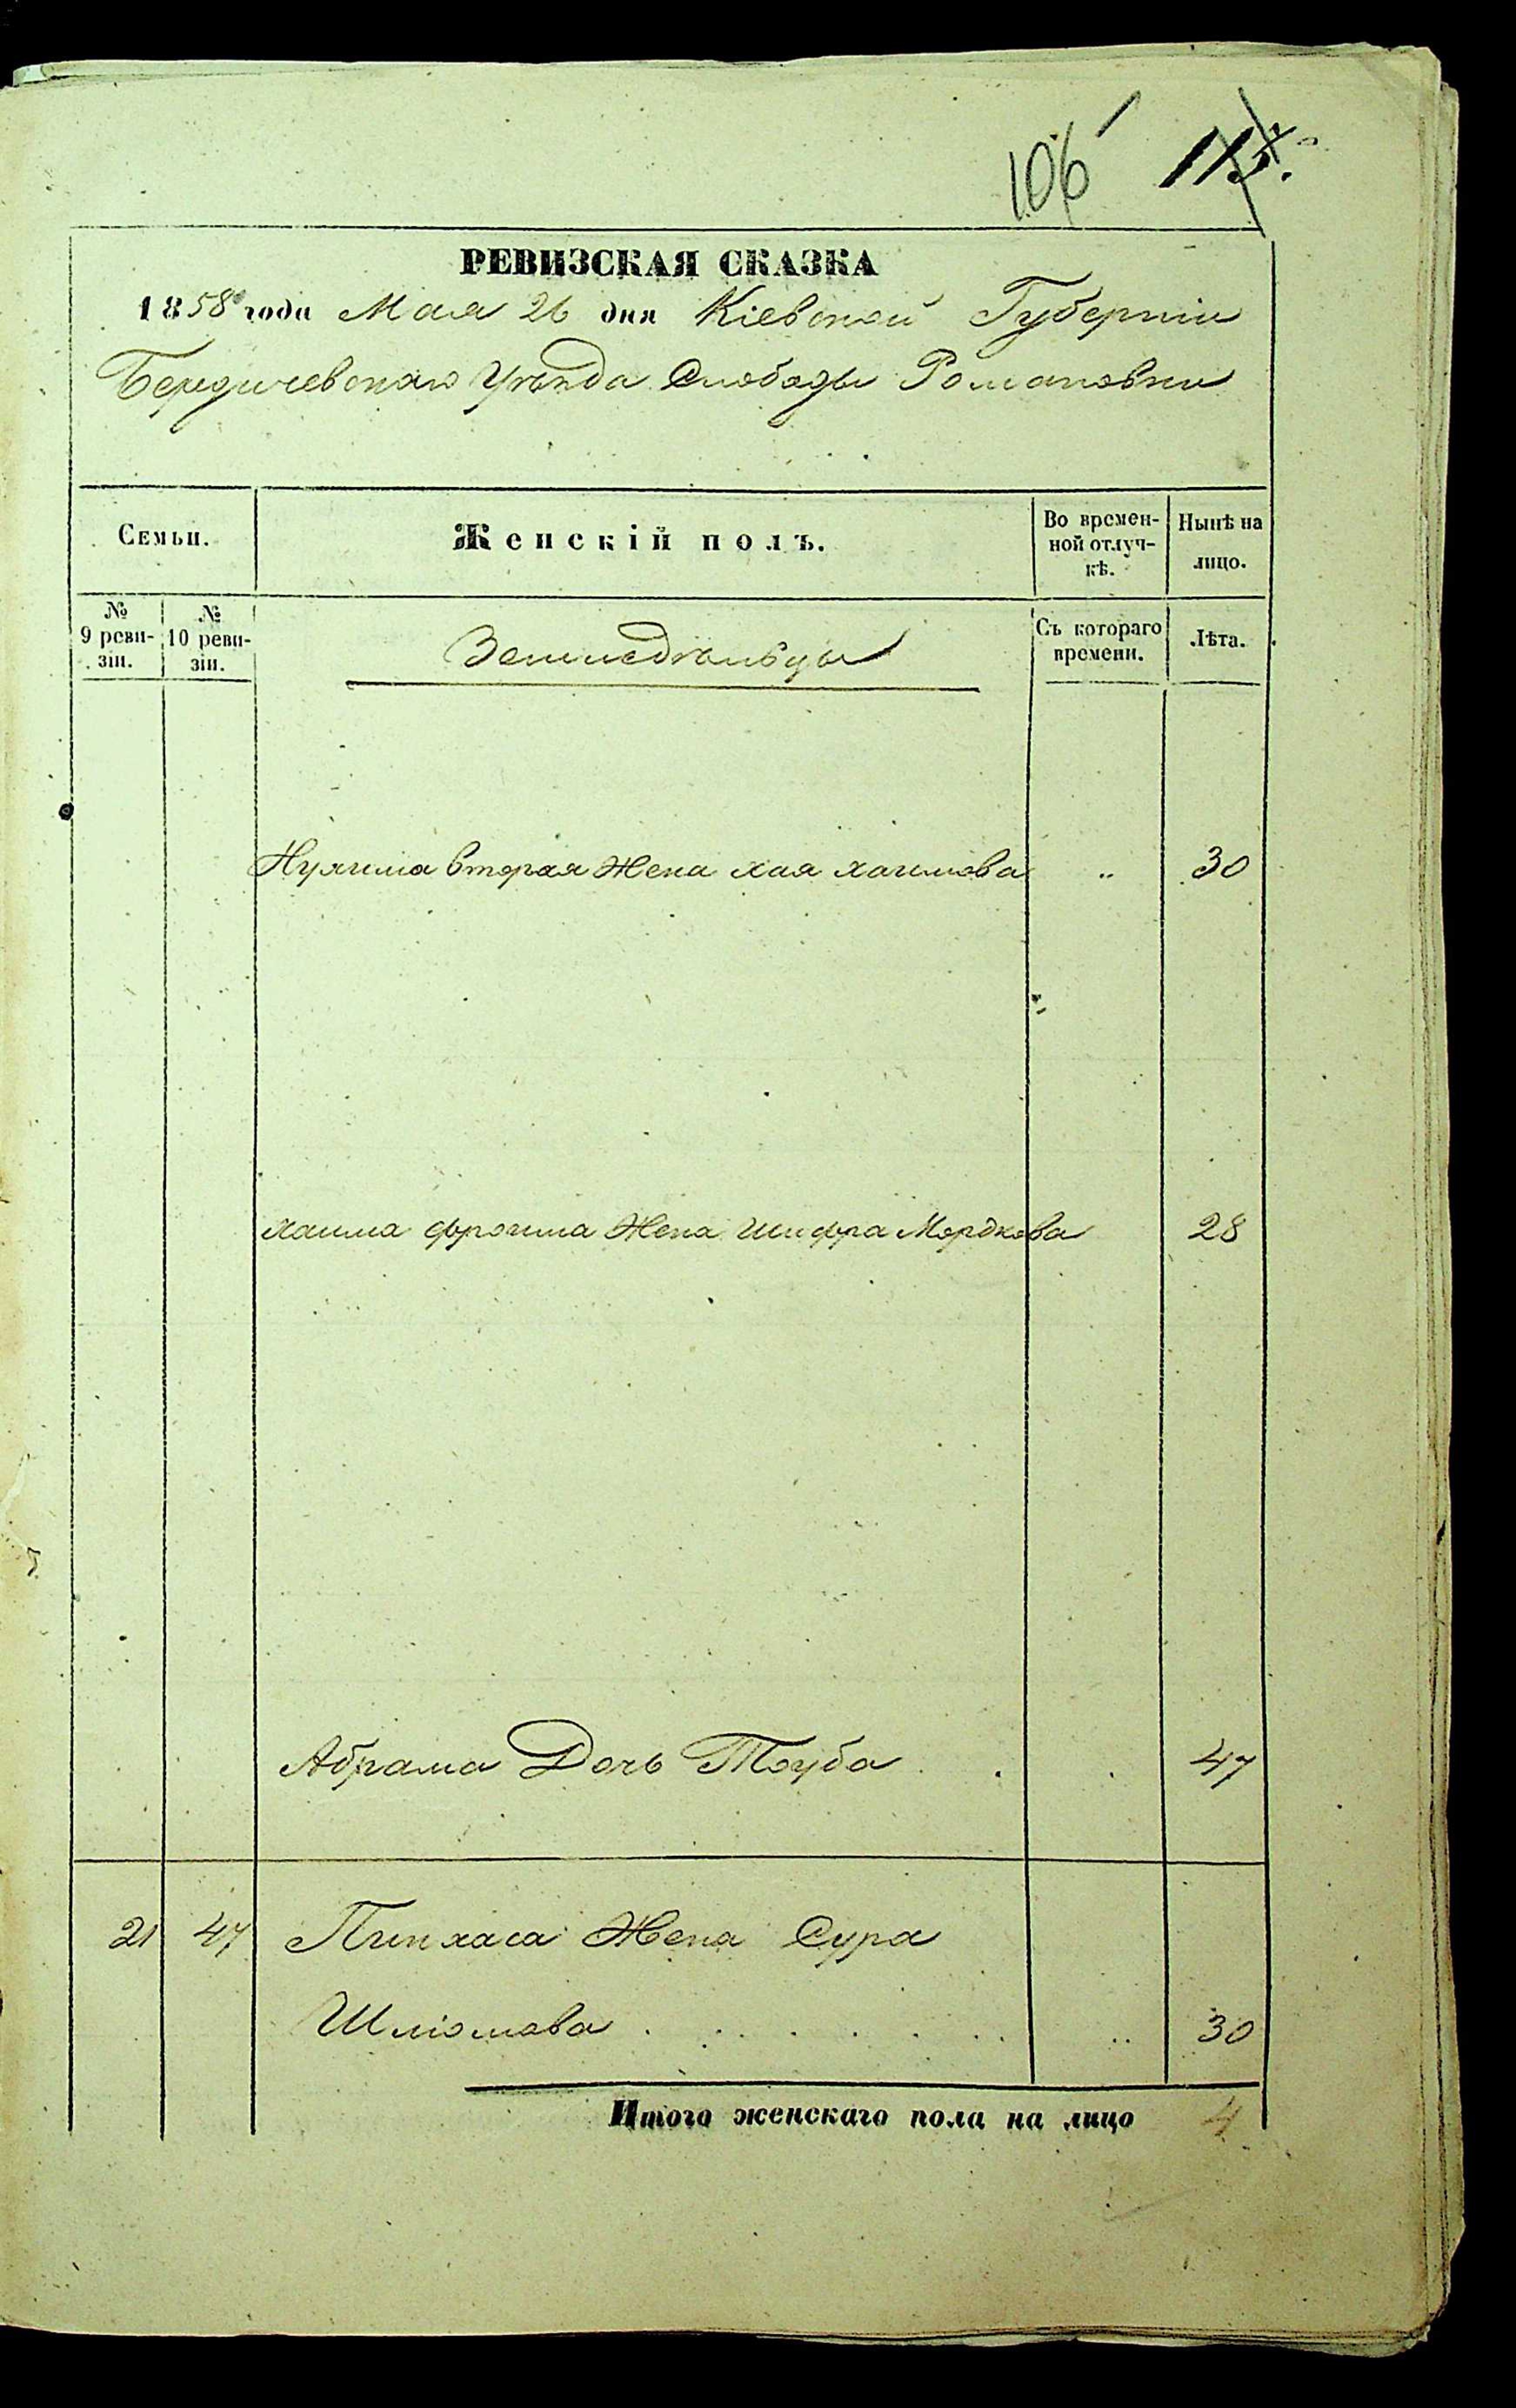 106 115.
РЕВИЗСКАЯ СКАЗКА
1858 года Мая 26 дня Кіевской Губерніи
Бердичевскаго Уѣзда Слободы Романовки
Семьи.
Женскій полъ.
Во времен-
ной отлуч-
кѣ.
Нынѣ на
лицо.
№
9 реви-
зіи.
№
10 реви-
зіи.
Земледѣльцы
Съ котораго
времени.
Лѣта.
вторая Жена хая хаимова .. 30
хаима фроима Жена Шифра Мордкова 28
Абрама Дочь Тоуба . . . 47
21 47 Пинхаса Жена Сура
Шліомова . . . . . . . .. 30
Итого женскаго пола на лицо 4